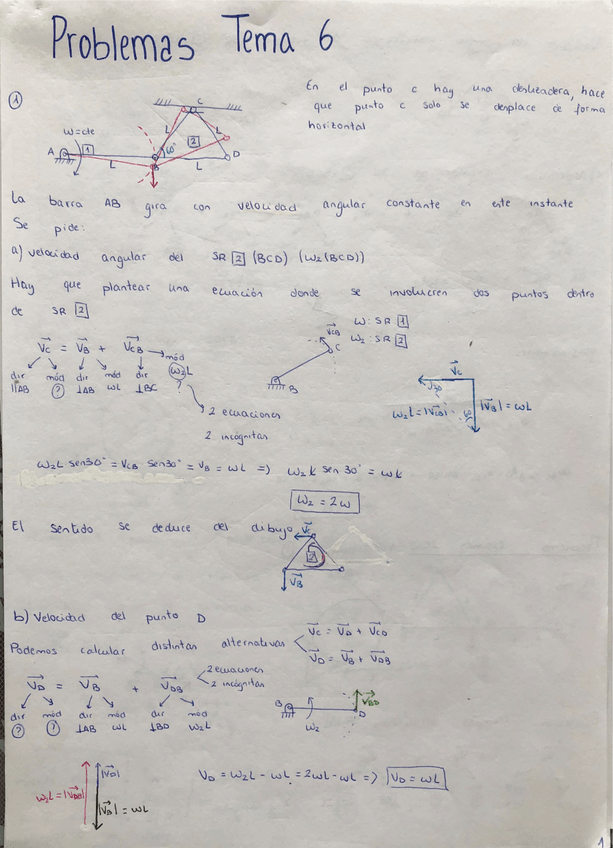 Problemas Tema 6
En el punto c hay una deslizadera, hace
que punto c solo se desplace de forma
horizontal
1
C
W=cte
A
1
L
B
60°
2
L
L
L
D
La barra AB gira con velocidad angular constante en este instante
Se pide:
a) velocidad angular del SR 2 (BCD) (ω2(BCD))
Hay que plantear una ecuación donde se involucren dos puntos dentro
de SR 2
ω: SR 1
ω2: SR 2
VCB
C
B
VC = VB + VCB → mód
dir mód dir mód dir ω2L
||AB ? ⊥AB ωL ⊥BC ?
2 ecuaciones
2 incógnitas
VC
30
ω2L = |VCB|
60
|VB| = ωL
ω2L sen30° = VCB sen30° = VB = ωL => ω2L sen 30° = ωL
ω2 = 2ω
El sentido se deduce del dibujo
VC
2
VB
b) Velocidad del punto D
Podemos calcular distintas alternativas
VC = VD + VCD
VD = VB + VDB
2 ecuaciones
2 incógnitas
VD = VB + VDB
dir mód dir mód dir mód
? ? ⊥AB ωL ⊥BD ω2L
B
ω2
D
VBD
ω2L = |VDB|
|VD|
|VB| = ωL
VD = ω2L - ωL = 2ωL - ωL => VD = ωL
1